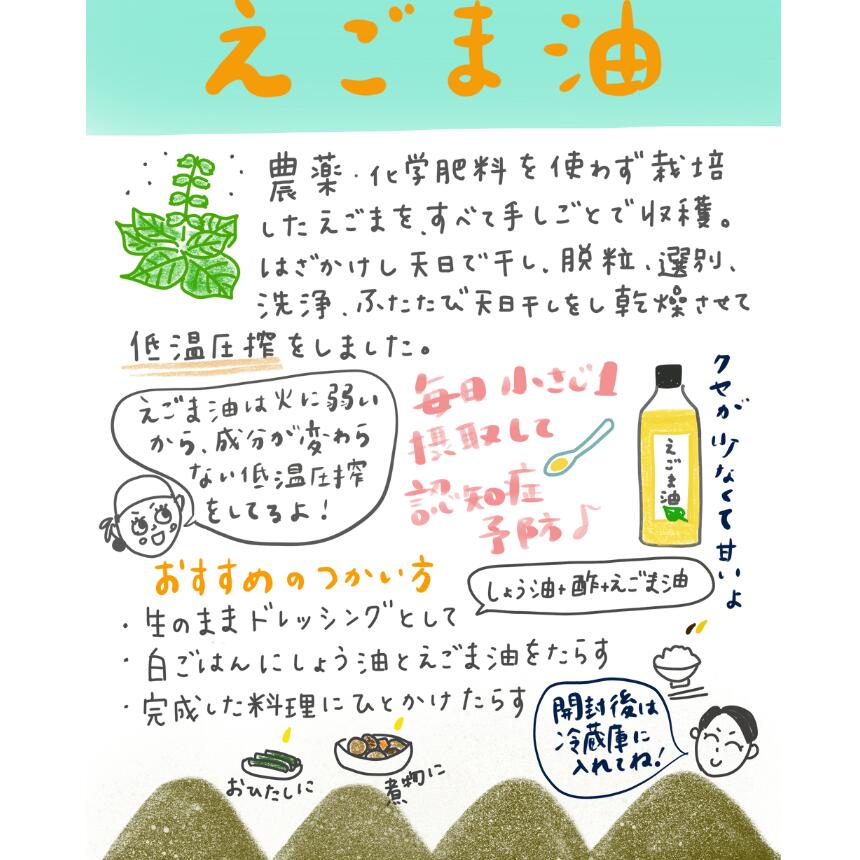 えごま油
農薬・化学肥料を使わず栽培
したえごまを、すべて手しごとで収穫。
はざかけし天日で干し、脱粒、選別、
洗浄、ふたたび天日干しをし乾燥させて
低温圧搾をしました。
えごま油は火に弱い
から、成分が変わら
ない低温圧搾
をしてるよ！
毎日小さじ1
摂取して
認知症
予防♪
えごま油
クセが少なくて甘いよ
おすすめのつかい方
しょう油+酢+えごま油
・生のままドレッシングとして
・白ごはんにしょう油とえごま油をたらす
・完成した料理にひとかけたらす
おひたしに
煮物に
開封後は
冷蔵庫に
入れてね！